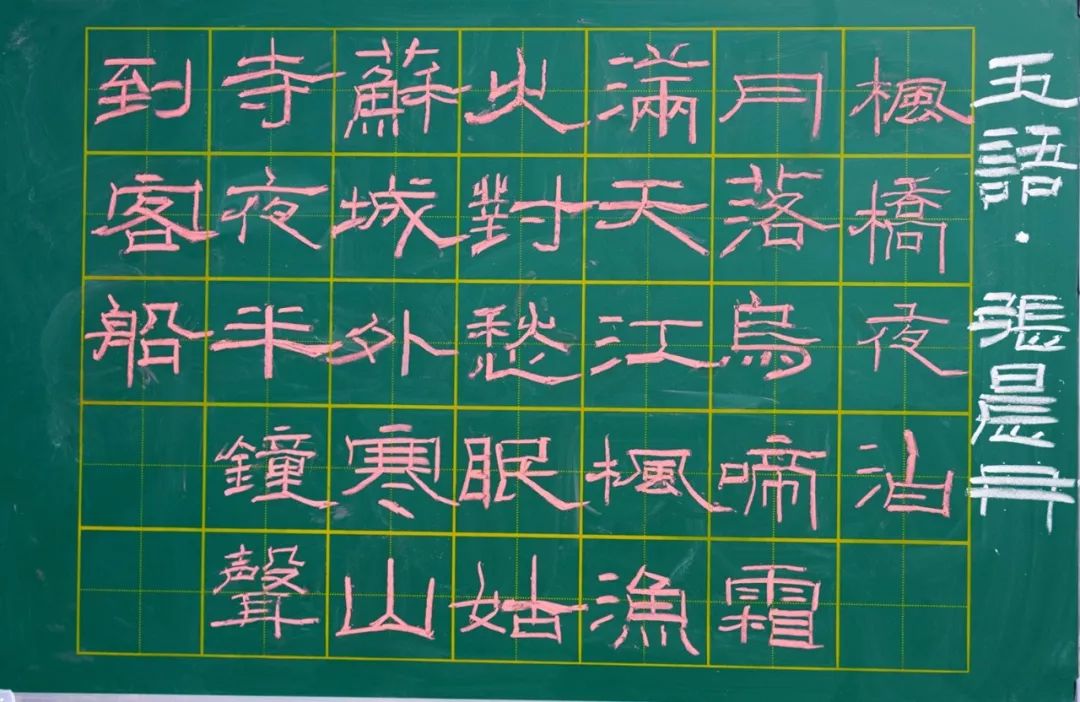 五語·張晨冉
楓橋夜泊
月落烏啼霜
滿天江楓漁
火對愁眠姑
蘇城外寒山
寺夜半鐘聲
到客船